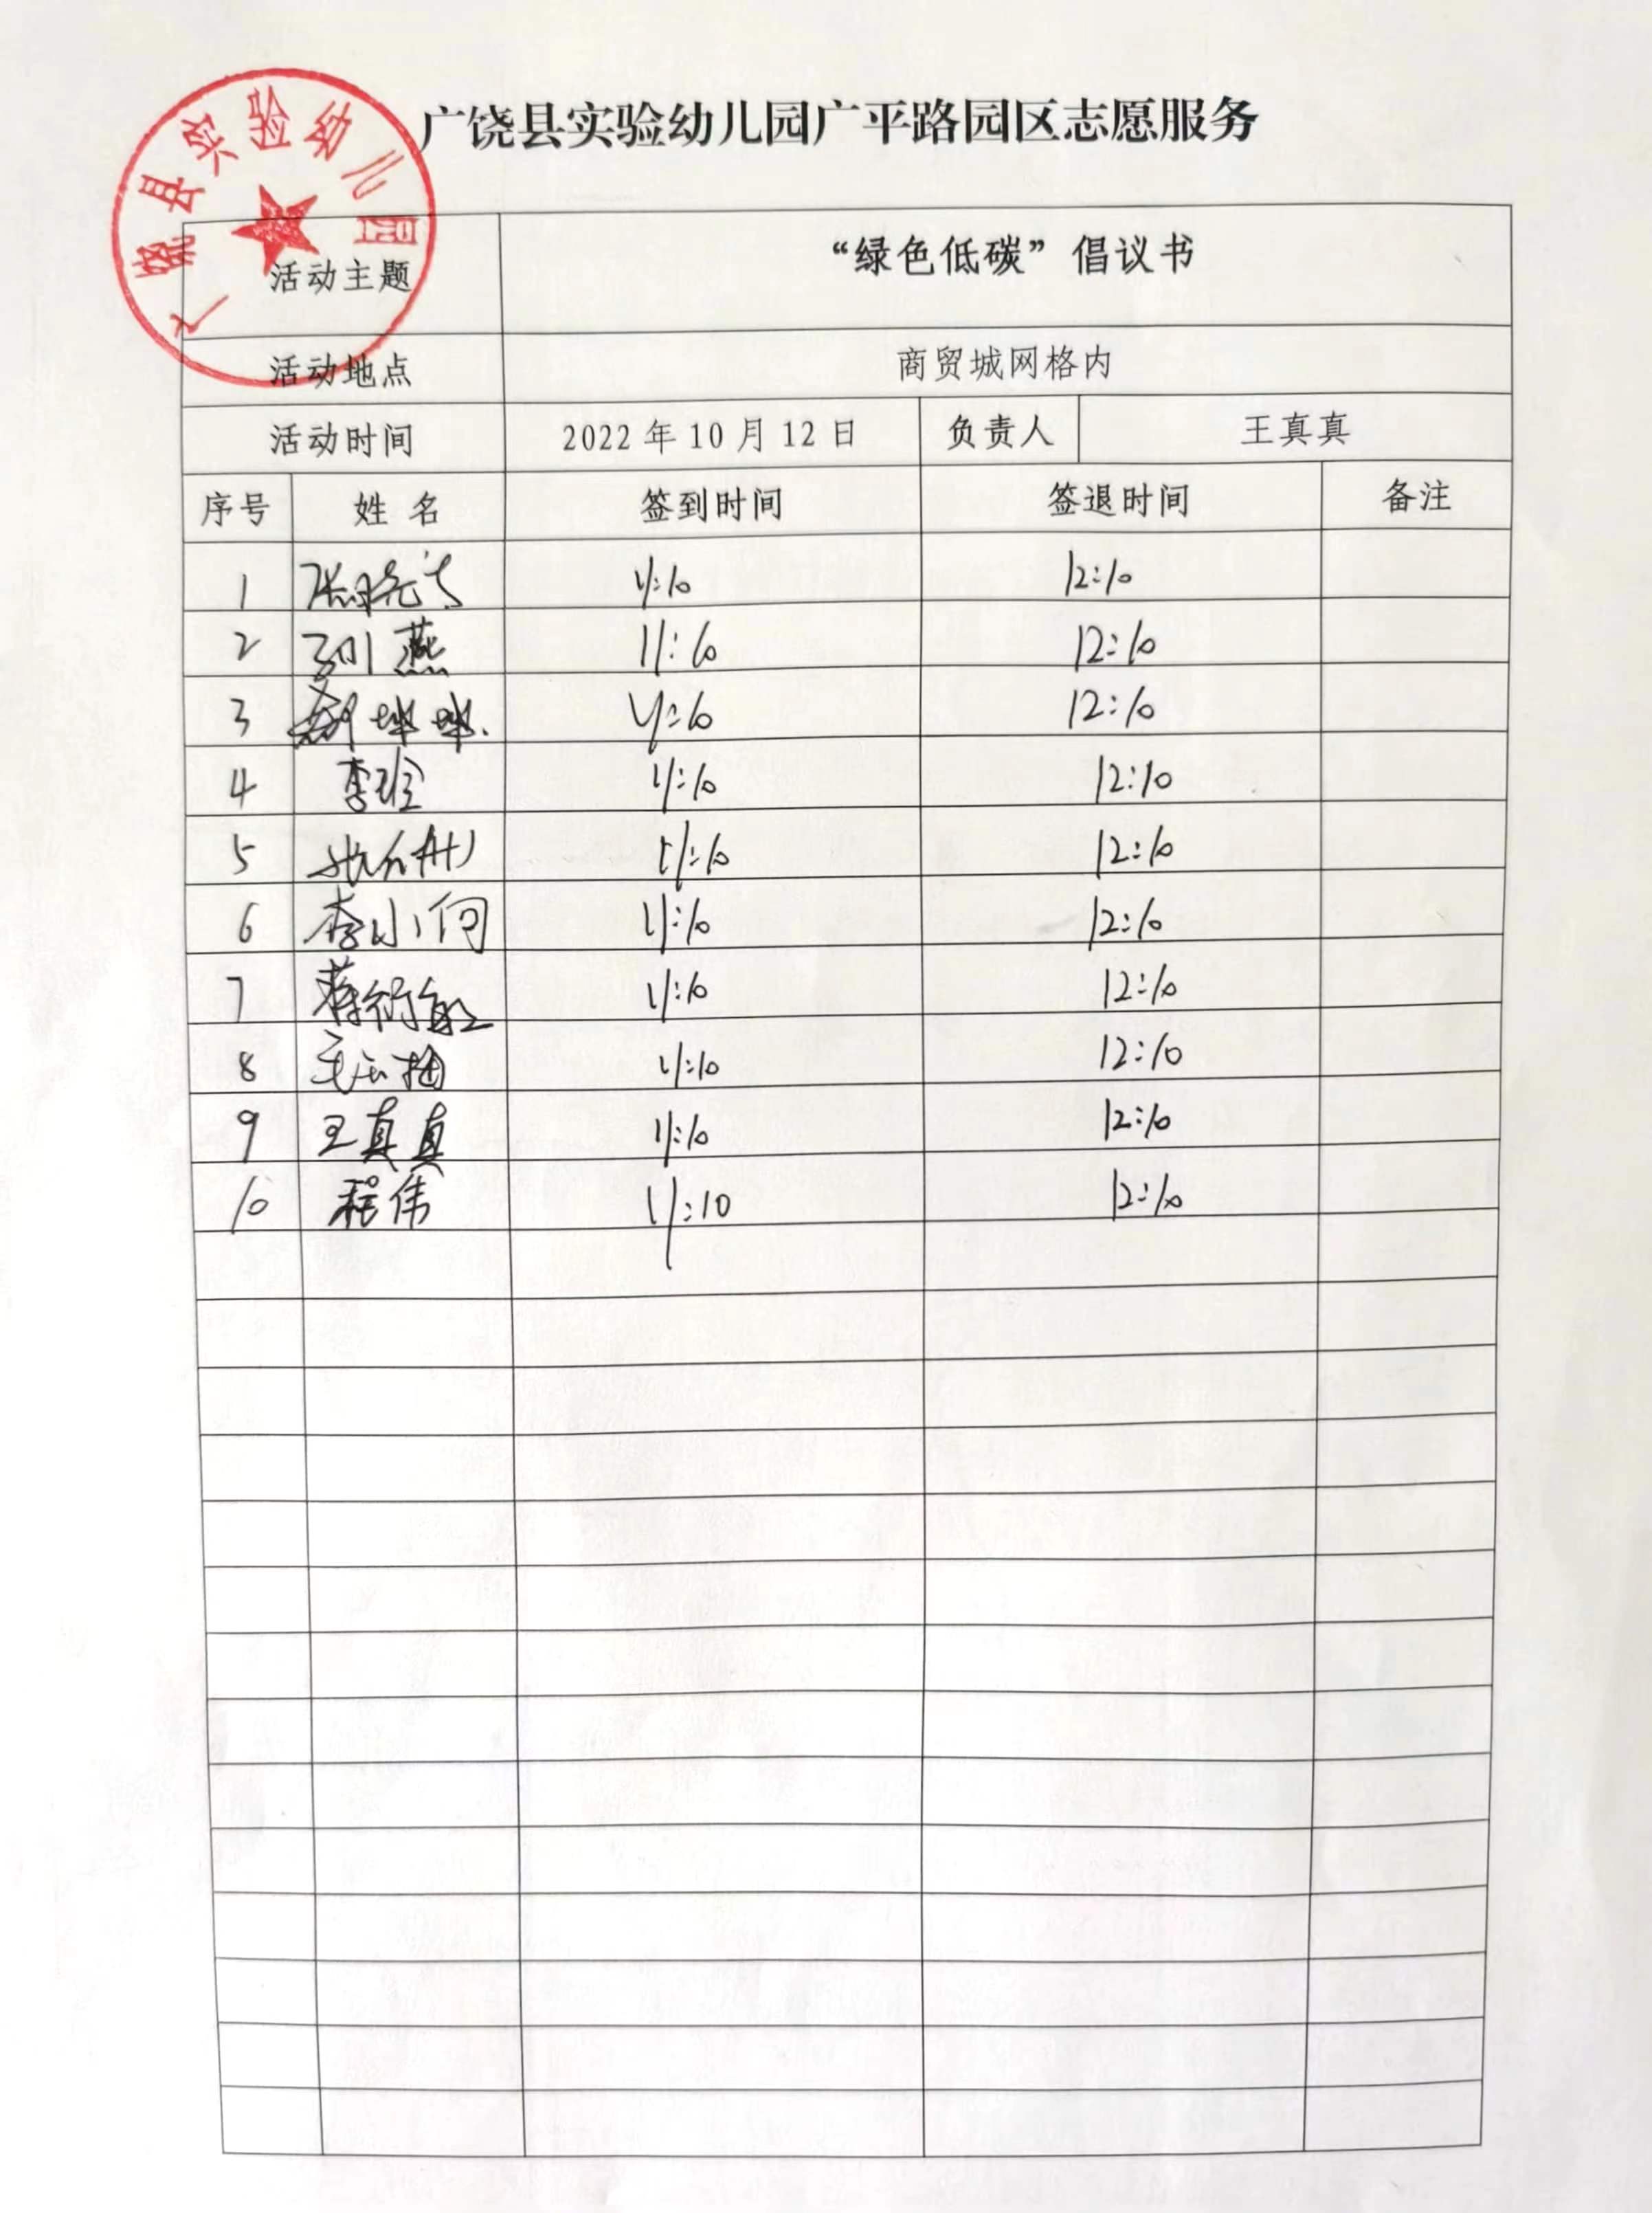 广饶县实验幼儿园
广饶县实验幼儿园广平路园区志愿服务
活动主题 “绿色低碳”倡议书
活动地点 商贸城网格内
活动时间 2022年10月12日 负责人 王真真
序号 姓名 签到时间 签退时间 备注
1 11:10 12:10
2 孙燕 11:10 12:10
3 11:10 12:10
4 李玲 11:10 12:10
5 11:10 12:10
6 李小何 11:10 12:10
7 蒋衍敏 11:10 12:10
8 11:10 12:10
9 王真真 11:10 12:10
10 程伟 11:10 12:10